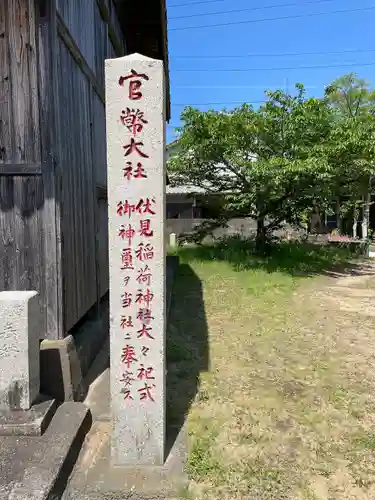 官幣大社
伏見稲荷神社大々祀式
御神璽ヲ当社ニ奉安ス